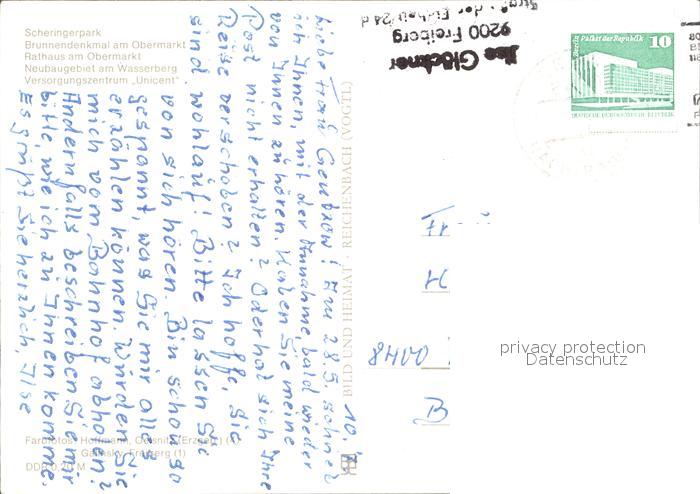 Scheringerpark
Brunnendenkmal am Obermarkt
Rathaus am Obermarkt
Neubaugebiet am Wasserberg
Versorgungszentrum „Unicent"
Ilse Glöckner
9200 Freiberg
Str. der Einheit 24d
Berlin Palast der Republik
10
DEUTSCHE DEMOKRATISCHE REPUBLIK
10.
Liebe Frau Gentzow! Am 28.5. schrieb
ich Ihnen, mit der Annahme, bald wieder
von Ihnen zu hören. Haben Sie meine
Post nicht erhalten? Oder hat sich Ihre
Reise verschoben? Ich hoffe, Sie
sind wohlauf! Bitte lassen Sie
von sich hören. Bin schon so
gespannt, was Sie mir alles
erzählen können. Würden Sie
mich vom Bahnhof abholen?
Andernfalls beschreiben Sie mir
bitte, wie ich zu Ihnen komme.
Es grüßt Sie herzlich, Ilse
BILD UND HEIMAT · REICHENBACH (VOGTL)
8400
privacy protection
Datenschutz
Farbfotos: Hoffmann, Oelsnitz (Erzgeb.) (4)
Galinsky, Freiberg (1)
DDR 0,20 M